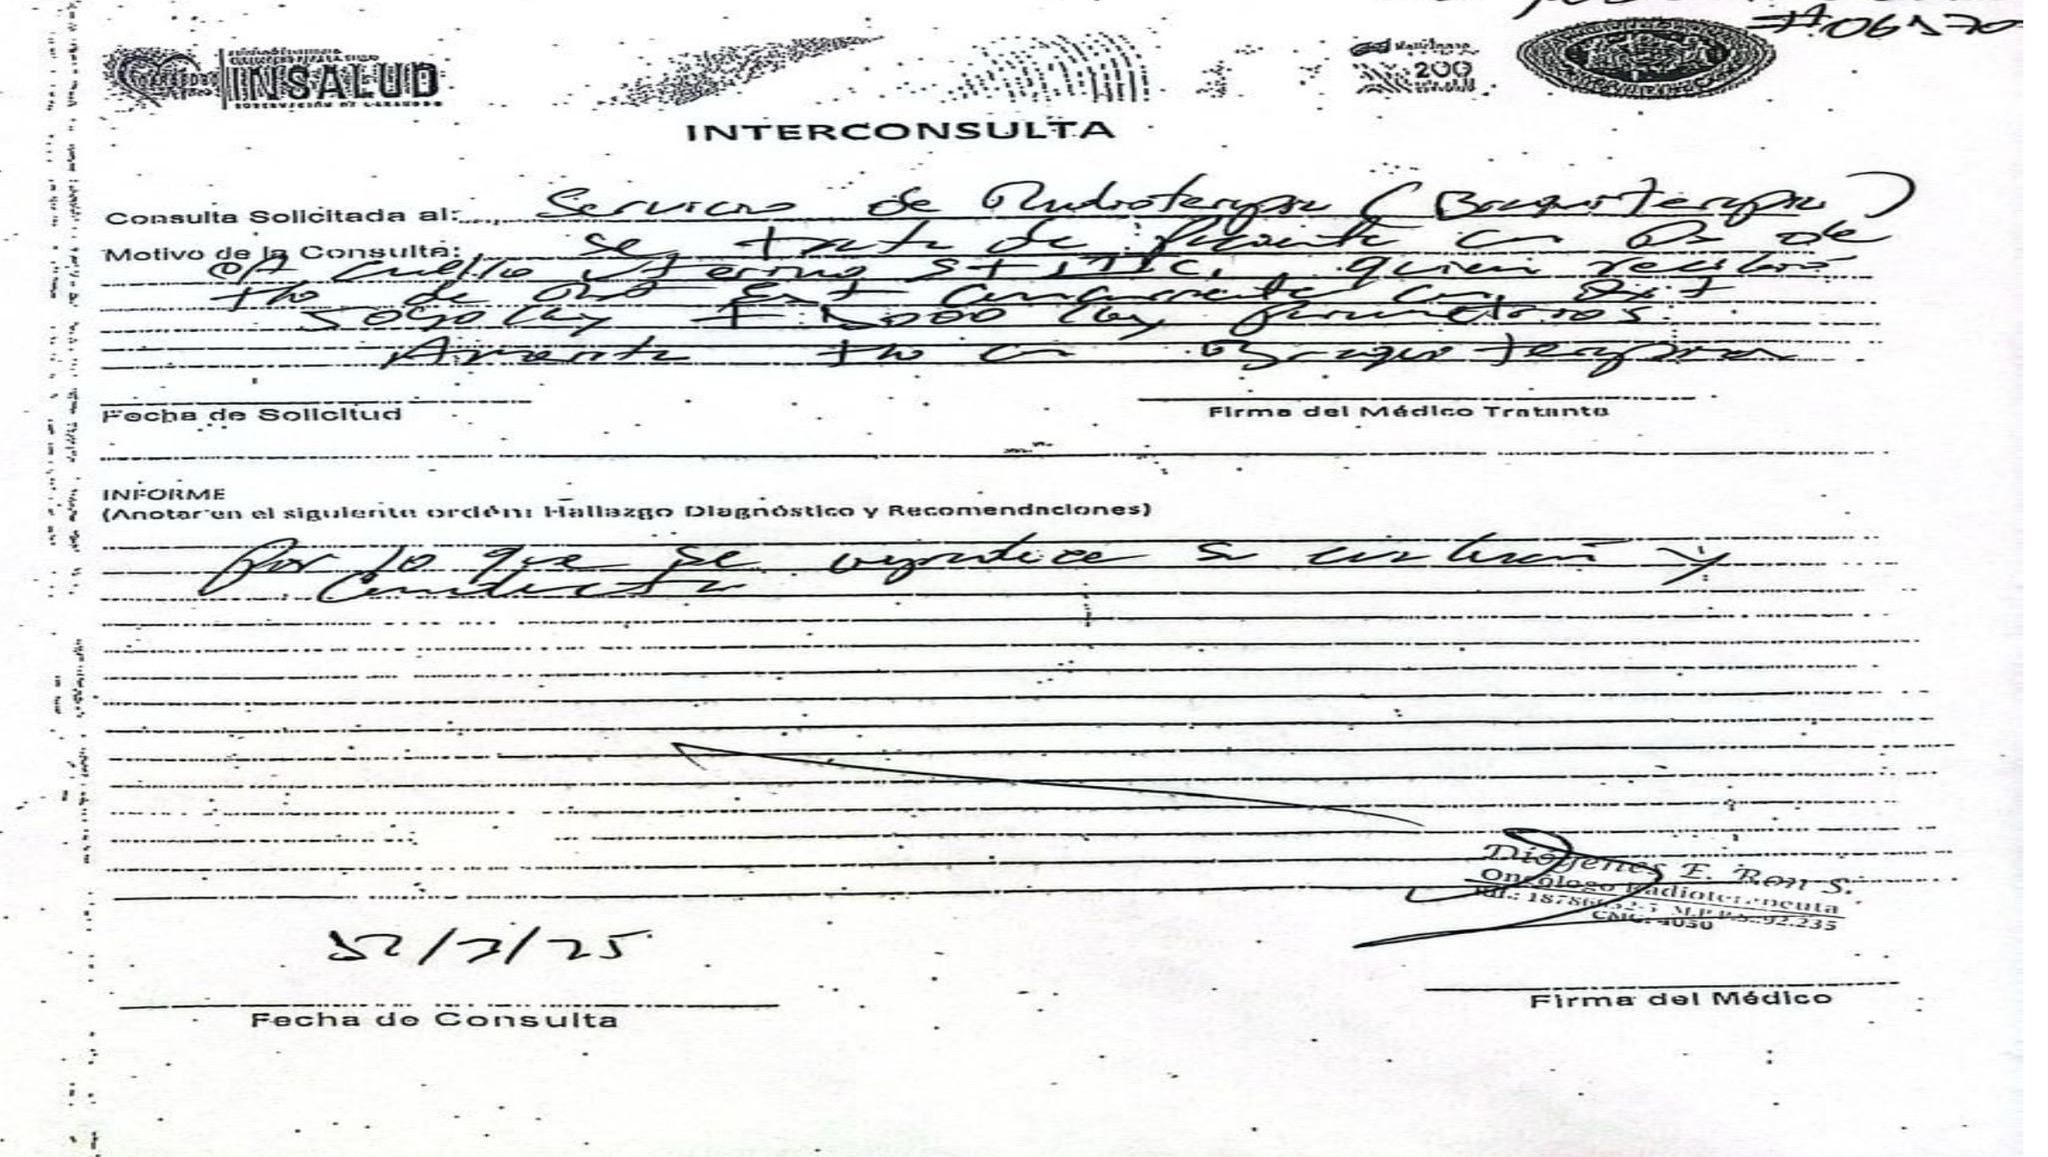 #06170
INSALUD
GOBERNACIÓN DE CARABOBO
200
INTERCONSULTA
Consulta Solicitada al: Servicio de Radioterapia (Braquiterapia)
Motivo de la Consulta: Se trata de paciente con Dx de
Ca cuello uterino ST IIIC, quien recibió
tto de Ext concurrente con
parametrios.
Amerita tto con Braquiterapia
Fecha de Solicitud
Firma del Médico Tratante
INFORME
(Anotar en el siguiente orden: Hallazgo Diagnóstico y Recomendaciones)
Por lo que se agradece su evaluación y
Conducta
Diógenes E. Ron S.
Oncólogo Radioterapeuta
M.P.P.S.:92.235
CMC: 4050
12/7/25
Fecha de Consulta
Firma del Médico